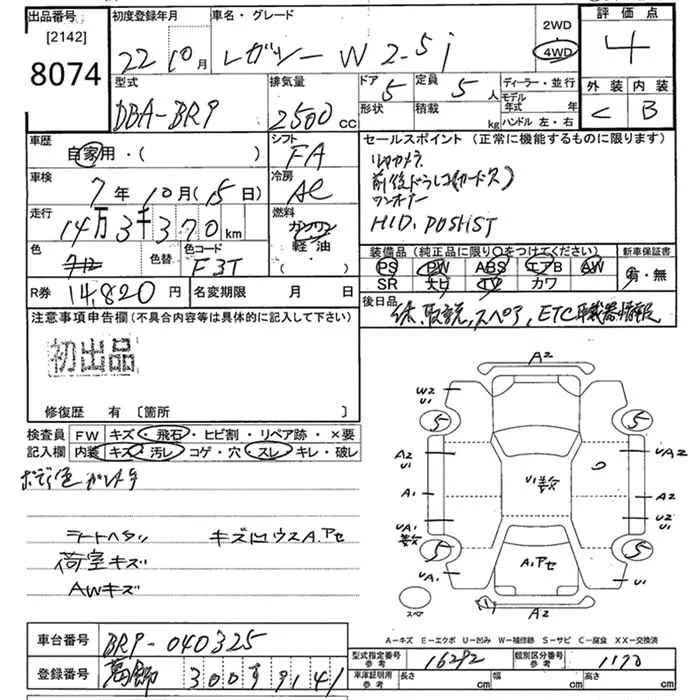 出品番号
[2142]
8074
初度登録年月
22 10月
車名・グレード
レガシーW 2.5i
2WD
4WD
評価点
4
外装 内装
C B
型式
DBA-BR9
排気量
2500 CC
ドア 5
形状
定員 5 人
積載 kg
ディーラー・並行
モデル年式 年
ハンドル 左・右
車歴
自家用・( )
シフト
FA
車検
7年10月(15日)
冷房
AC
走行
14万3千370km
燃料
ガソリン
軽・油
( )
色
色替
色コード
F3T
R券 14,820 円
名変期限 月 日
セールスポイント (正常に機能するものに限ります)
リヤカメラ
前後ドラレコ(カードス)
ワンオーナー
HID、Pｽﾀｰﾄ
装備品(純正品に限り○をつけてください)
PS PW ABS エアB AW
SR ナビ TV カワ
新車保証書
有・無
後日品
保、取説、スペア、ETC車載器情報
注意事項申告欄(不具合内容等は具体的に記入して下さい)
初出品
修復歴 有 [箇所 ]
検査員記入欄
FW キズ・飛石・ヒビ割・リペア跡・×要
内装 キズ・汚レ・コゲ・穴・スレ・キレ・破レ
シートヘタリ キズ
荷室キズ
AWキズ
A2
W2
U1
5
5
A2
U1
UA2
A1
U1
A2
UA1
U2
5
5
A、アセ
UA1
U1
スペア
A2
A－キズ E－エクボ U－凹み W－補修跡 S－サビ C－腐食 XX－交換済
車台番号 BR9-040325
登録番号 葛飾 300す9141
型式指定番号
参考
16292
類別区分番号
参考
1170
車庫証明用
参考
長さ cm
幅 cm
高さ cm